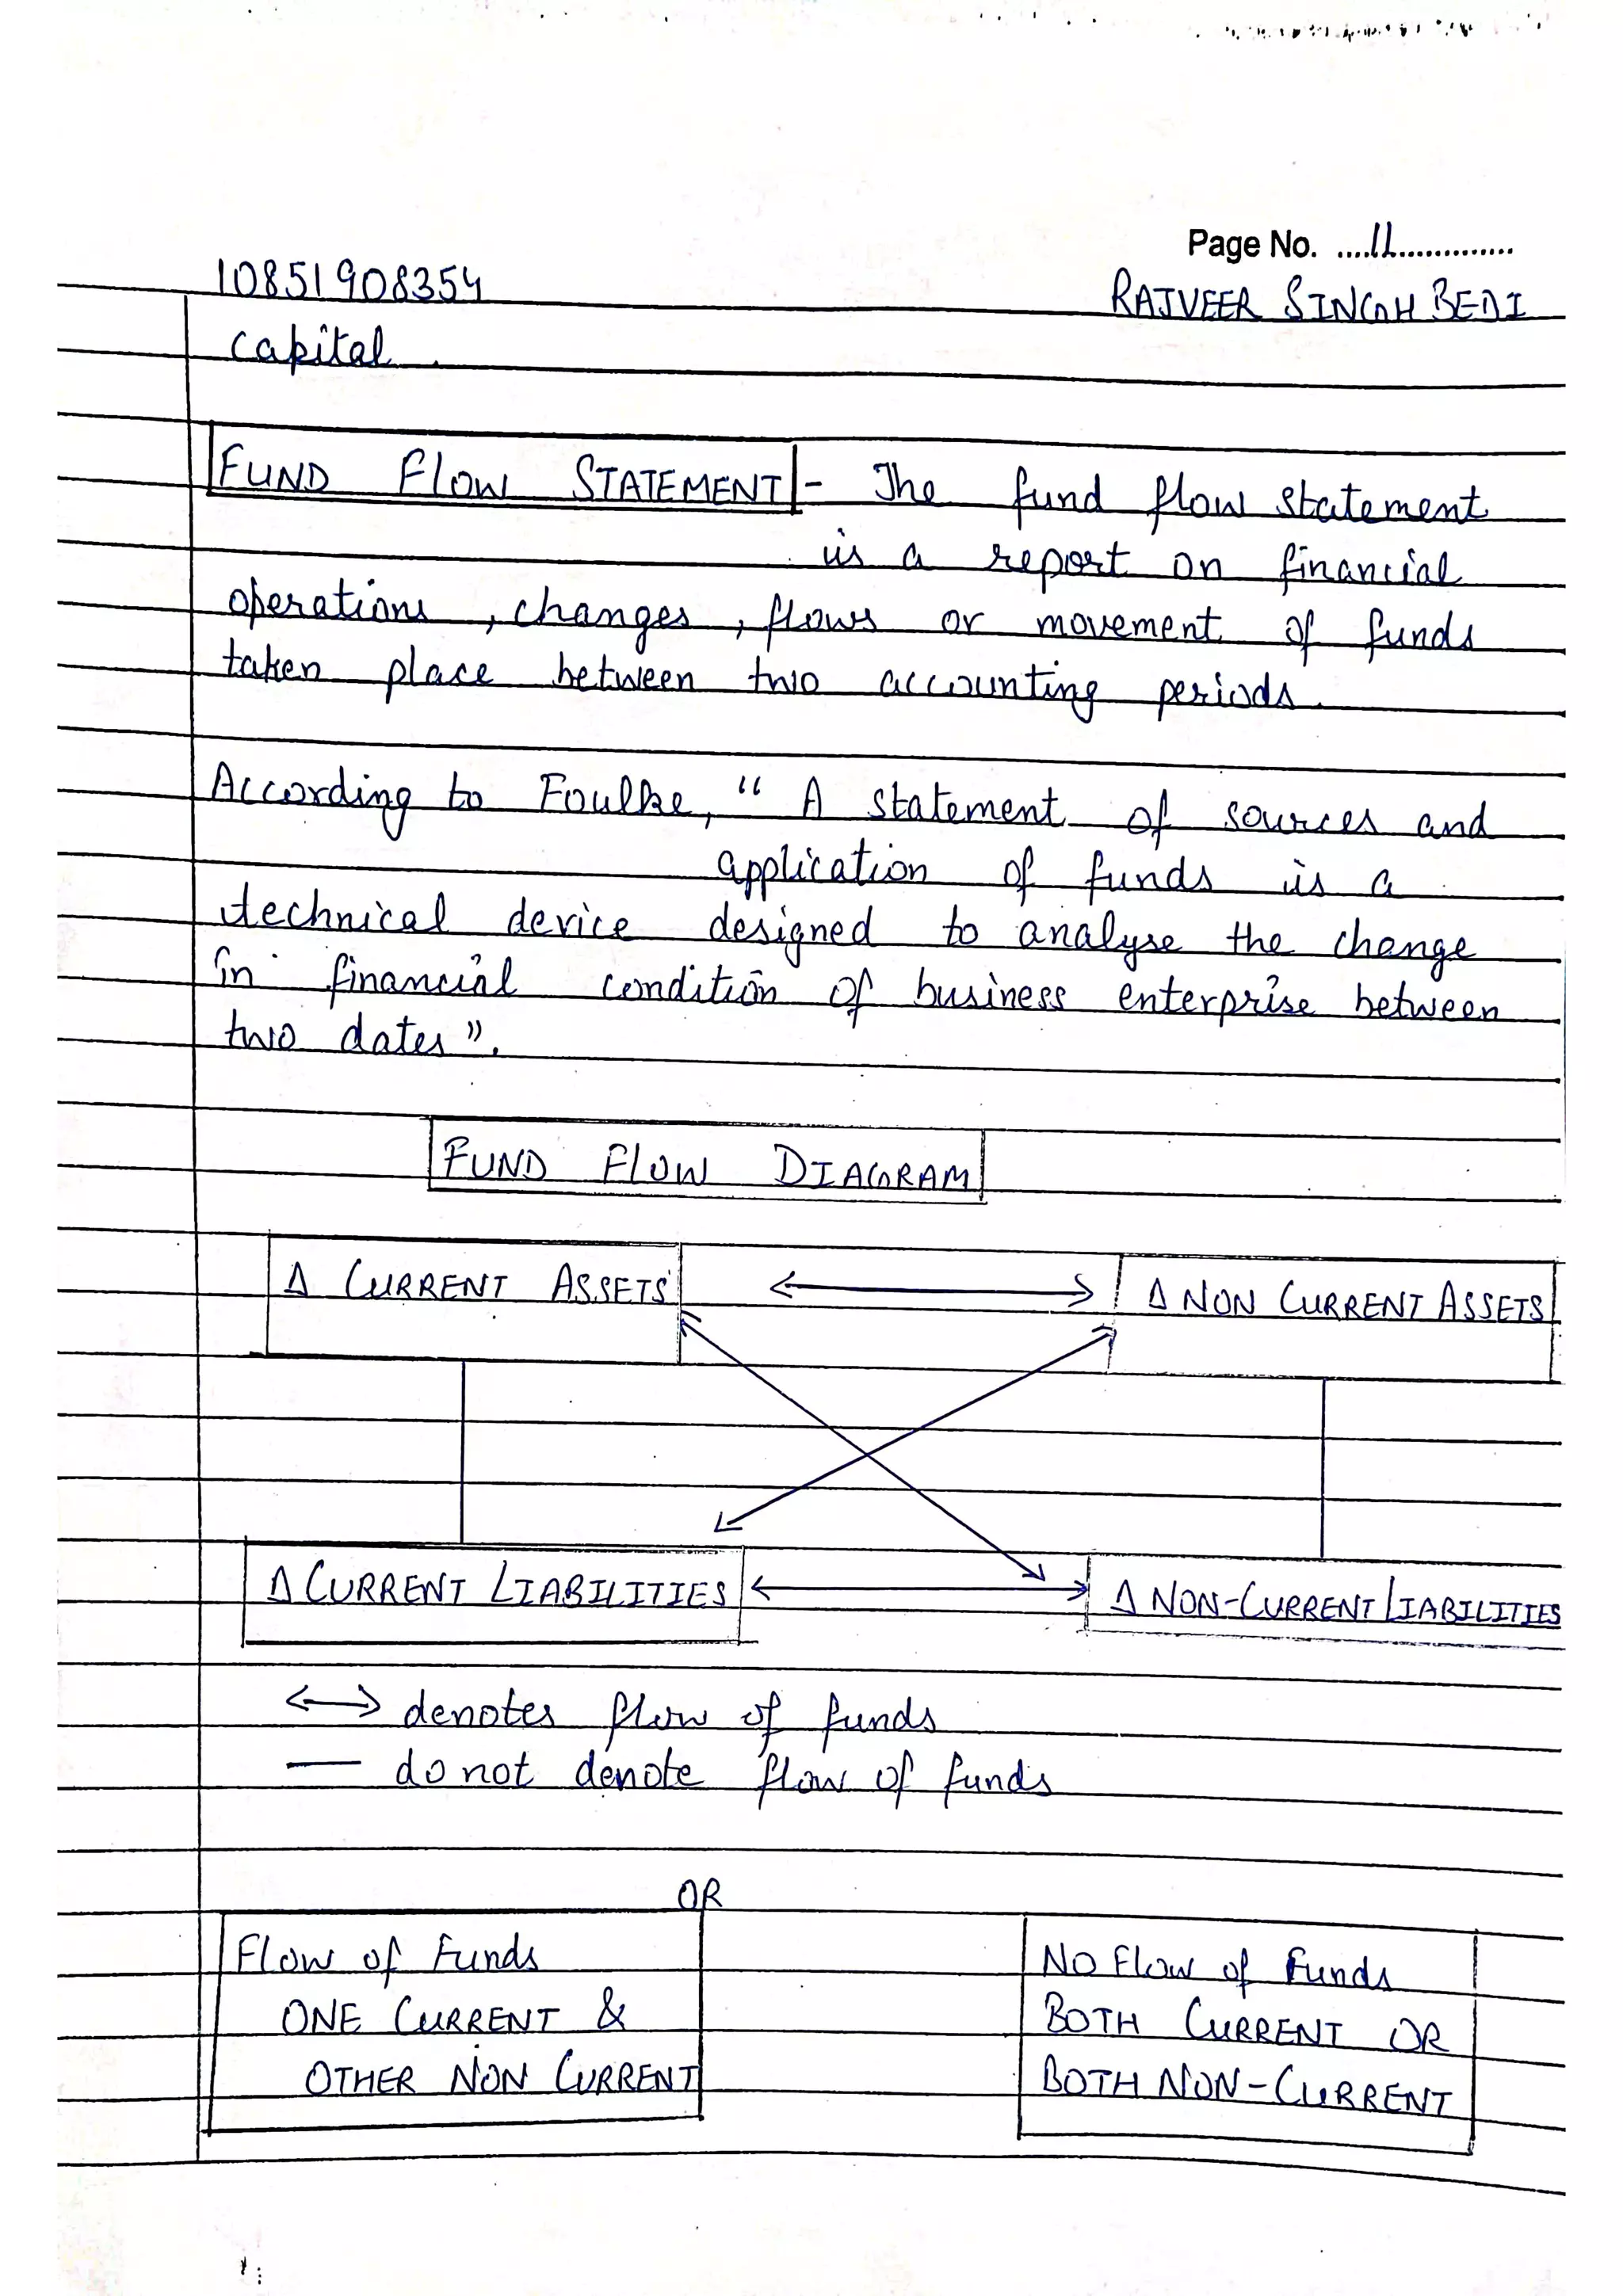 Page No. ....11..............
10851908354
RAJVEER SINGH BEDI
capital.
FUND Flow STATEMENT - The fund flow statement
is a report on financial
operations, changes, flows or movement of funds
taken place between two accounting periods.
According to Foulke, “ A statement of sources and
application of funds is a
technical device designed to analyse the change
in financial condition of business enterprise between
two dates ”.
FUND Flow DIAGRAM
Δ CURRENT ASSETS ↔ Δ NON CURRENT ASSETS
Δ CURRENT LIABILITIES ↔ Δ NON-CURRENT LIABILITIES
↔ denotes flow of funds
— do not denote flow of funds
OR
Flow of Funds
ONE CURRENT &
OTHER NON CURRENT
NO Flow of Funds
BOTH CURRENT OR
BOTH NON-CURRENT